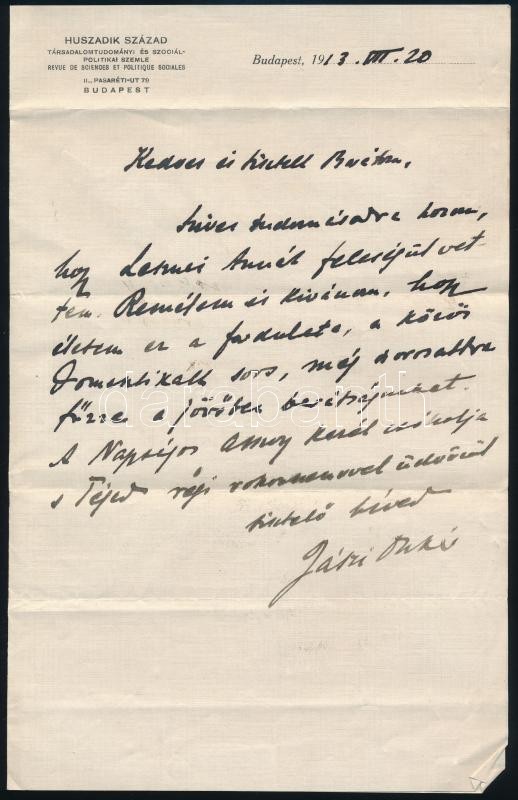 HUSZADIK SZÁZAD
TÁRSADALOMTUDOMÁNYI ÉS SZOCIÁL-
POLITIKAI SZEMLE
REVUE DE SCIENCES ET POLITIQUE SOCIALES
II., PASARÉTI-UT 79
BUDAPEST
Budapest, 1913. III. 20
Kedves és tisztelt Barátom,
Szíves tudomásodra hozom,
hogy Lesznai Annát feleségül vet-
tem. Remélem és kívánom, hogy
életem ez a fordulata, a közös
sors, még szorosabbra
fűzze a jövőben barátságunkat.
A Nagyságos Asszony kezét csókolja
s Téged régi rokonszenvvel üdvözöl
tisztelő híved
Jászi Oszkár
darabanth